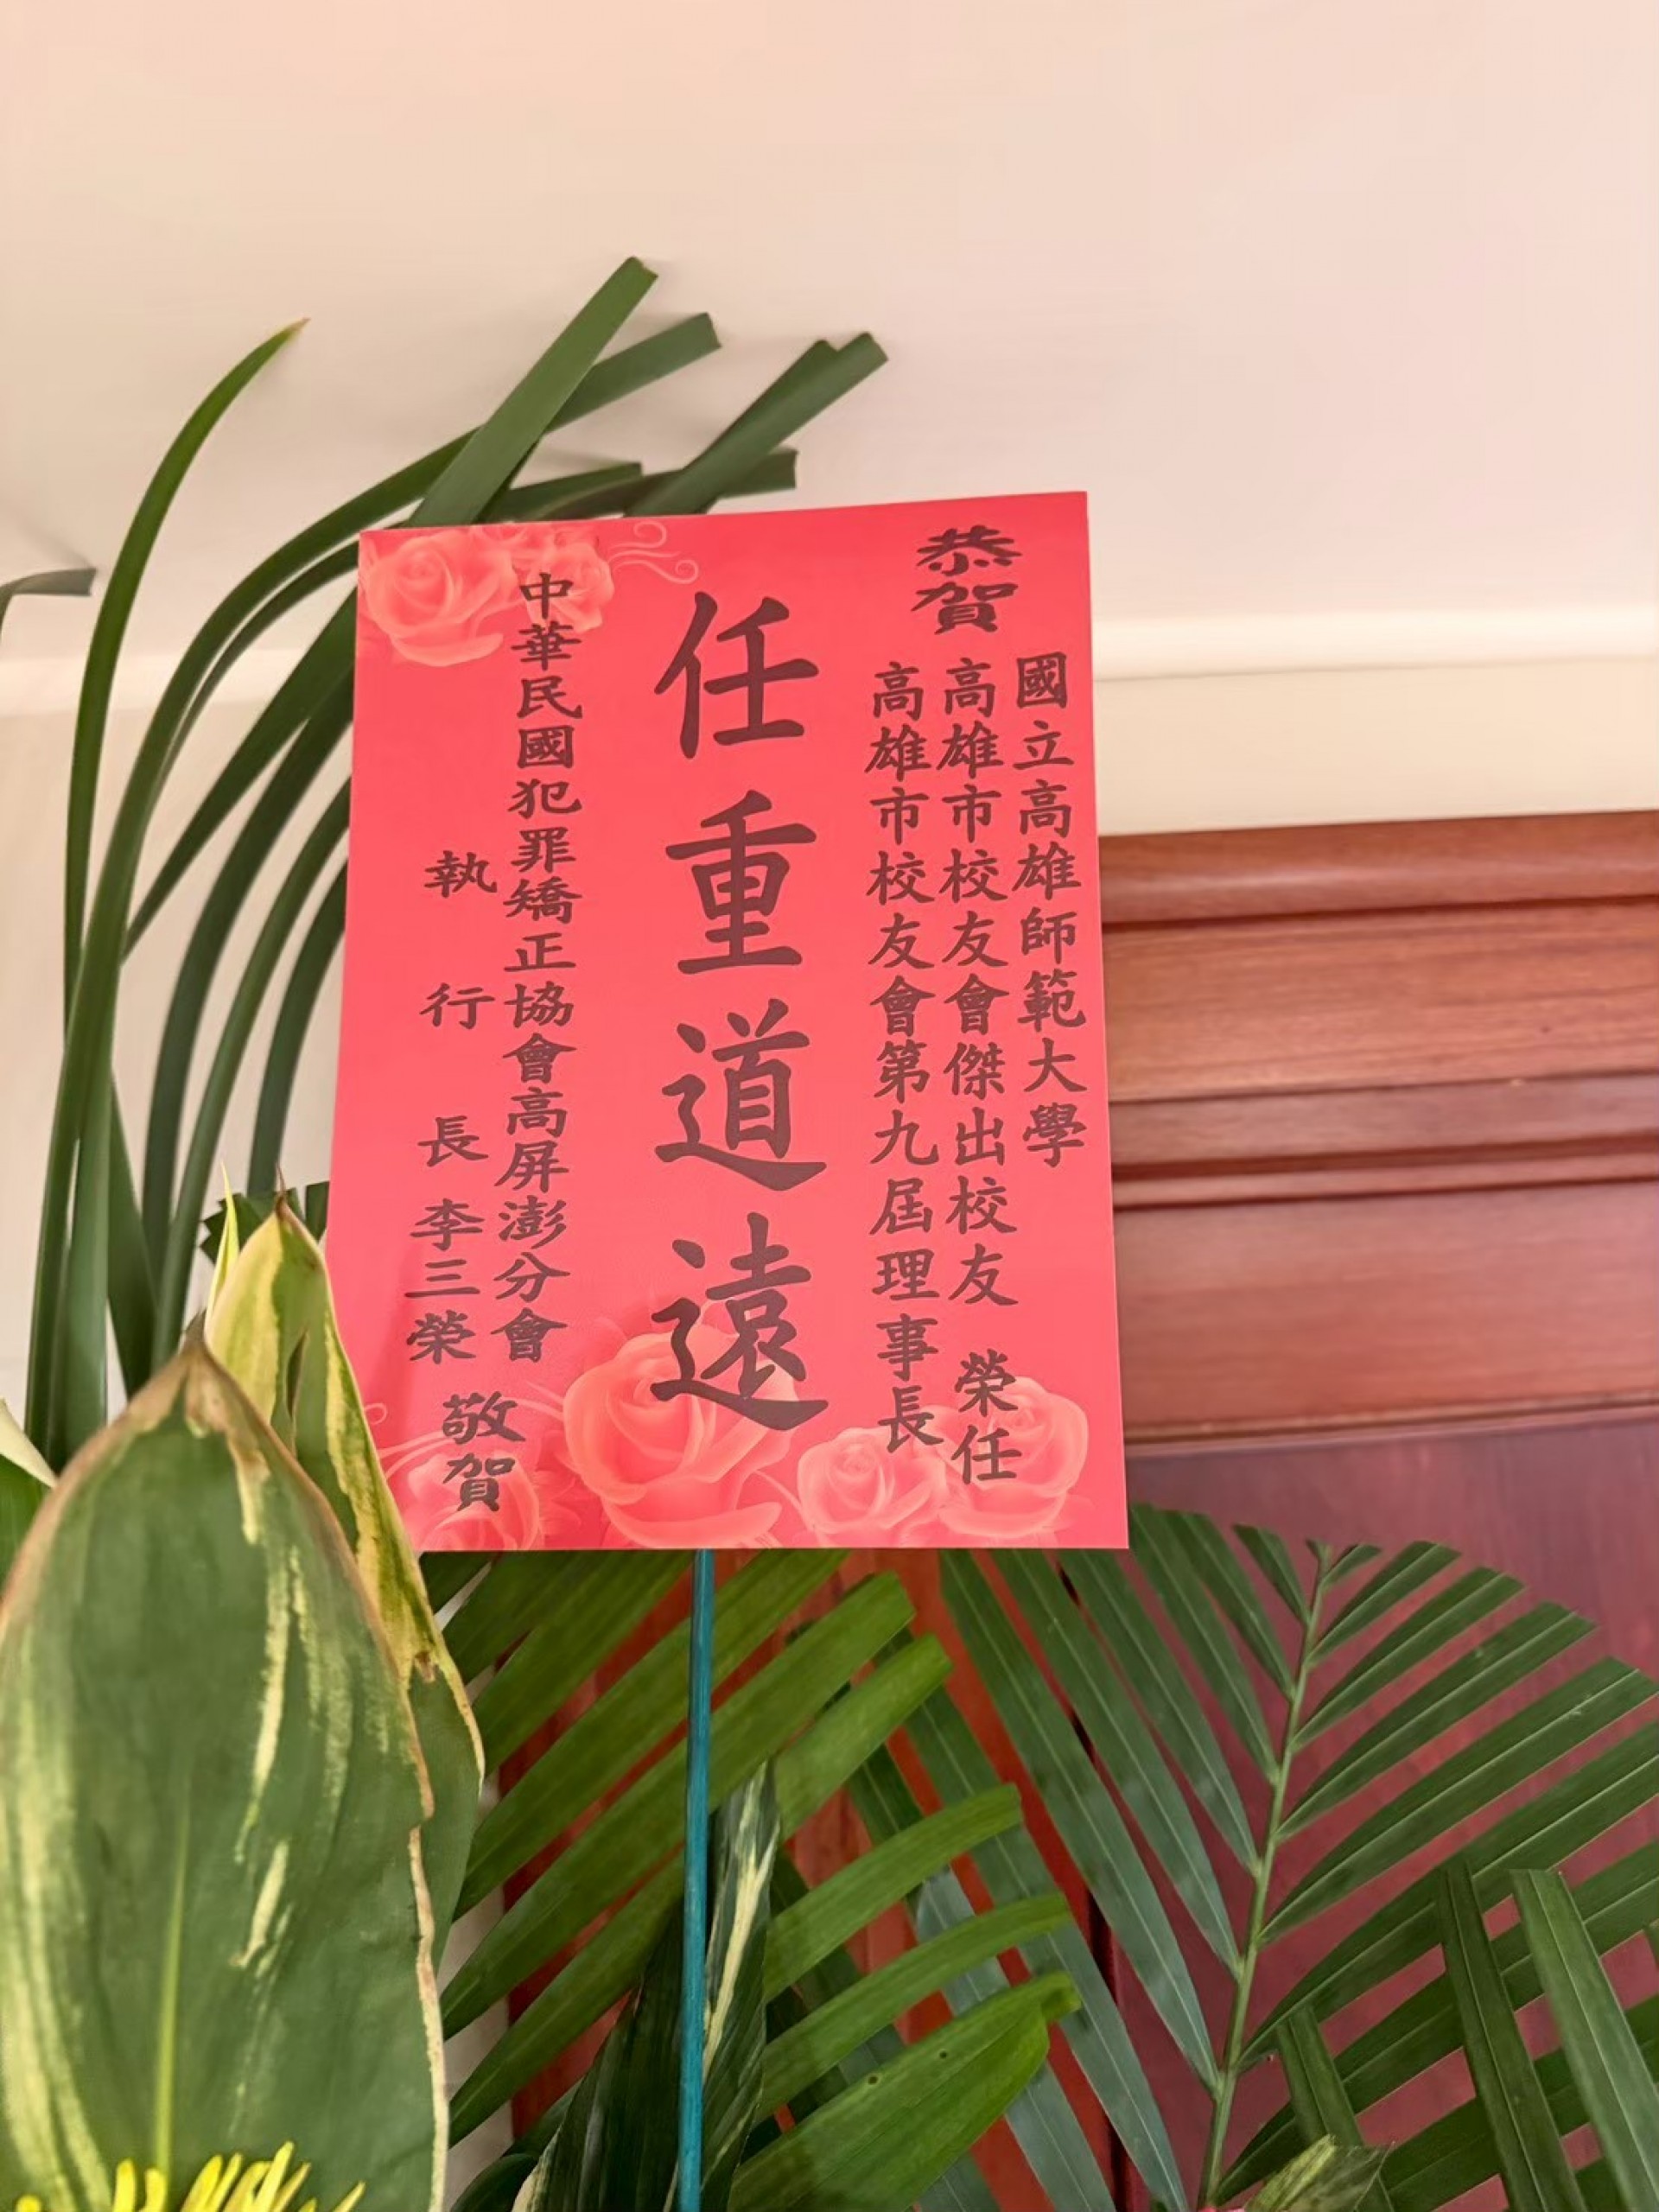 恭賀
國立高雄師範大學
高雄市校友會傑出校友 榮任
高雄市校友會第九屆理事長
任重道遠
中華民國犯罪矯正協會高屏澎分會
執行長李三榮
敬賀